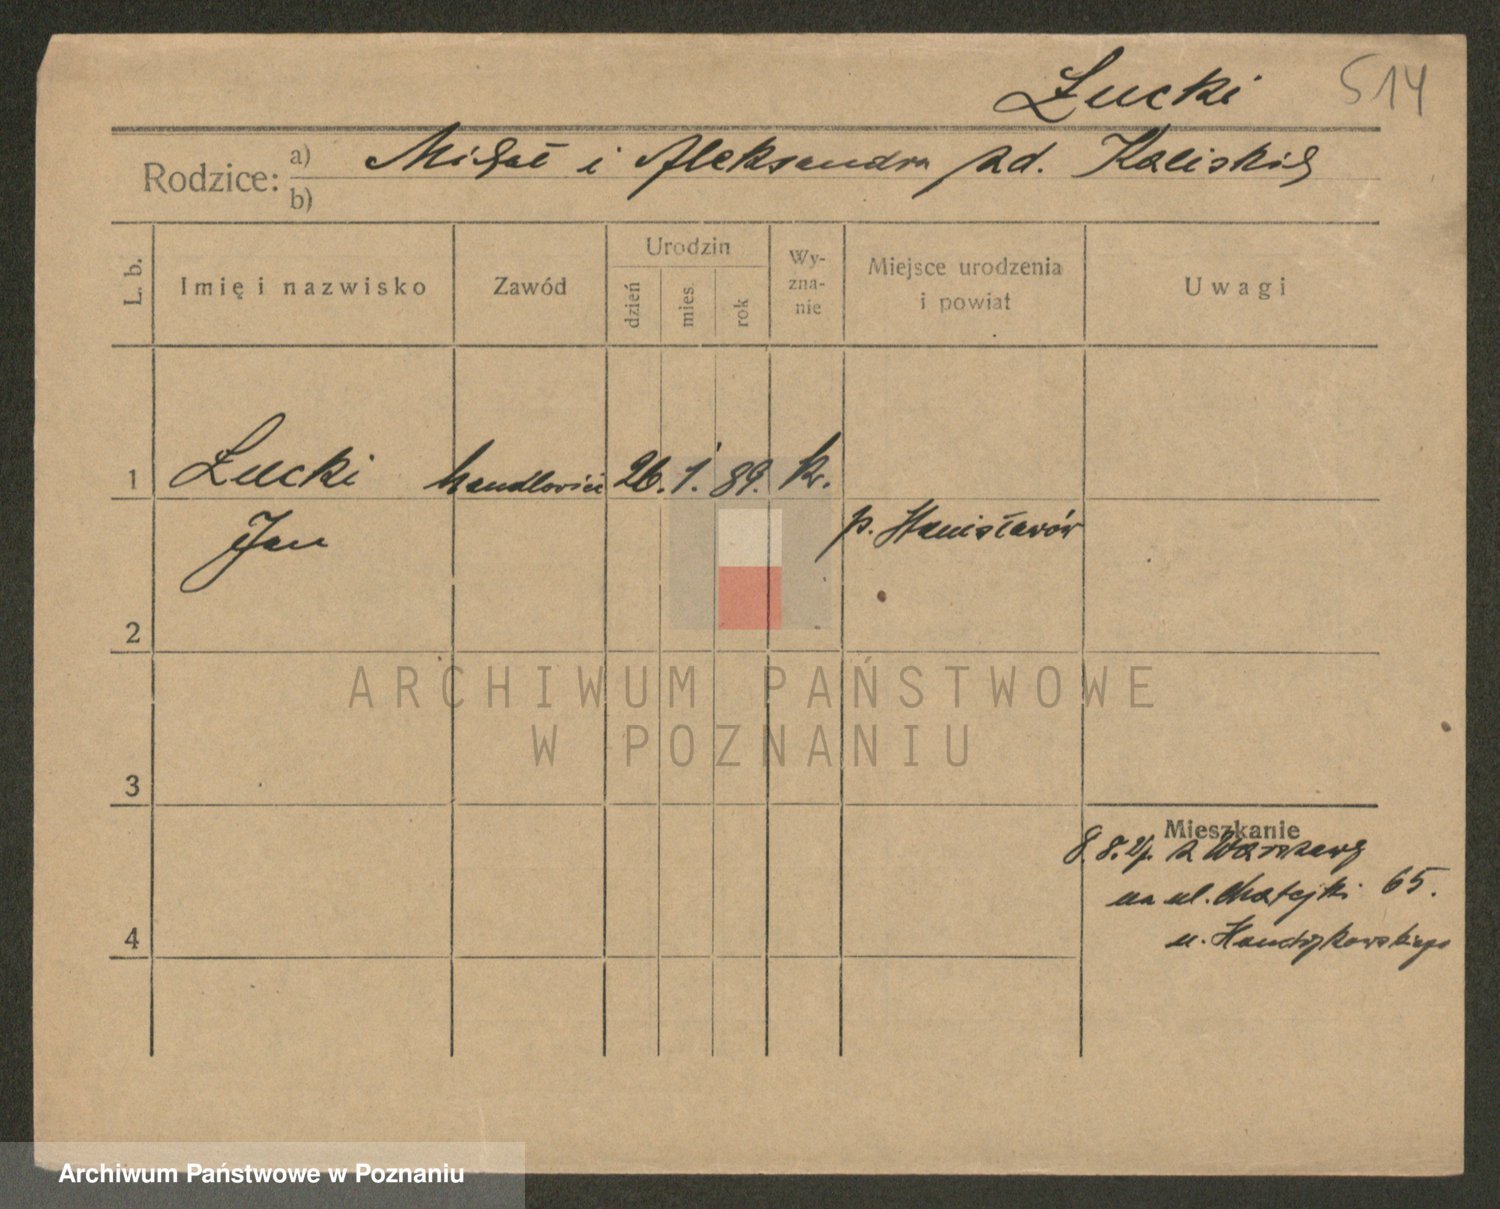 Łucki 514
Rodzice: a) Michał i Aleksandra zd. Kaliskich
b)
L. b. Imię i nazwisko Zawód Urodzin dzień mies. rok Wy-zna-nie Miejsce urodzenia i powiat Uwagi
1 Łucki handlowiec 26. 1. 89. kr.
Jan p. Stanisławów
2
ARCHIWUM PAŃSTWOWE
W POZNANIU
3
Mieszkanie
8. 8. z Warszawy
na ul. Matejki 65.
4 u.
Archiwum Państwowe w Poznaniu